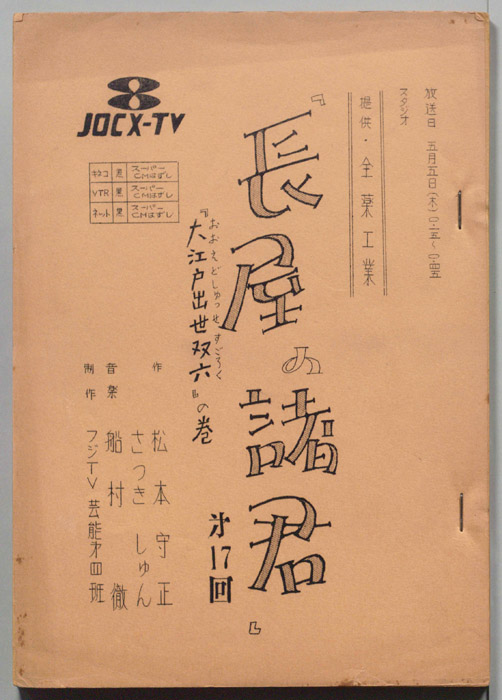 放送日 五月五日(木)〇・一五~〇・四五
スタジオ
提供・全薬工業
『長屋の諸君』
第17回
おおえどしゅっせすごろく
『大江戸出世双六』の巻
JOCX-TV
キネコ 黒 スーパー CMはずし
VTR 黒 スーパー CMはずし
ネット 黒 スーパー CMはずし
作 松本守正
さつきしゅん
音楽 船村徹
制作 フジTV芸能第四班